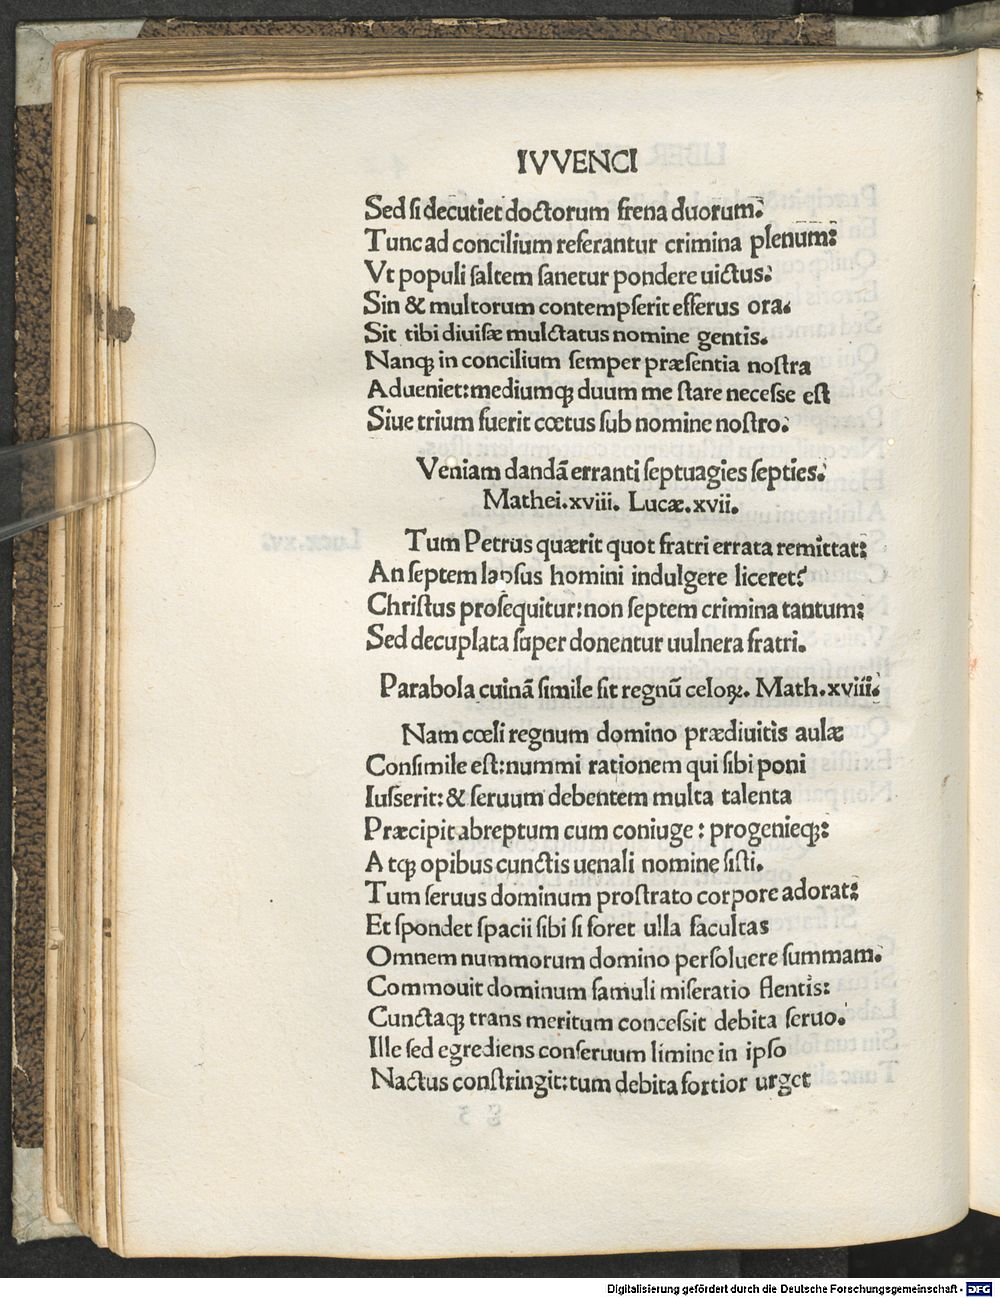 IVVENCI
Sed si decutiet doctorum frena duorum:
Tunc ad concilium referantur crimina plenum:
Vt populi saltem sanetur pondere uictus:
Sin & multorum contempserit efferus ora.
Sit tibi diuisæ mulctatus nomine gentis.
Nanqꝫ in concilium semper præsentia nostra
Adueniet: mediumqꝫ duum me stare necesse est
Siue trium fuerit cœtus sub nomine nostro.
Veniam dandā erranti septuagies septies.
Mathei.xviii. Lucæ.xvii.
Tum Petrus quærit quot fratri errata remittat:
An septem lapsus homini indulgere liceret?
Christus prosequitur: non septem crimina tantum:
Sed decuplata super donentur uulnera fratri.
Parabola cuinā simile sit regnū celoꝝ. Math.xviii.
Nam cœli regnum domino prædiuitis aulæ
Consimile est: nummi rationem qui sibi poni
Iusserit: & seruum debentem multa talenta
Præcipit abreptum cum coniuge: progenieqꝫ:
Atqꝫ opibus cunctis uenali nomine sisti.
Tum seruus dominum prostrato corpore adorat:
Et spondet spacii sibi si foret ulla facultas
Omnem nummorum domino persoluere summam.
Commouit dominum famuli miseratio flentis:
Cunctaqꝫ trans meritum concessit debita seruo.
Ille sed egrediens conseruum limine in ipso
Nactus constringit: tum debita fortior urget
Digitalisierung gefördert durch die Deutsche Forschungsgemeinschaft - DFG